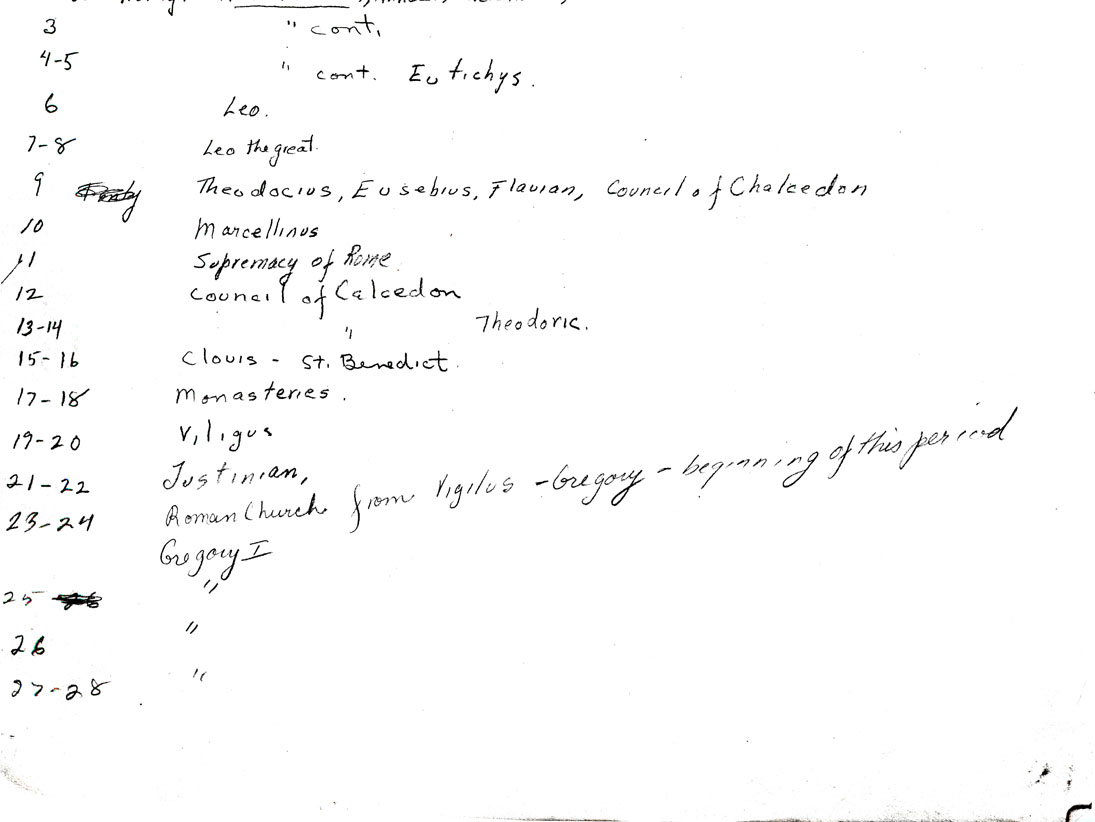 3 " cont.
4-5 " cont. Eutichys.
6 Leo.
7-8 Leo the great.
9 Theodocius, Eusebius, Flavian, Council of Chalcedon
10 Marcellinus
11 Supremacy of Rome.
12 Council of Calcedon
13-14 " Theodoric.
15-16 Clovis - St. Benedict.
17-18 Monasteries.
19-20 Viligus
21-22 Justinian,
23-24 Roman Church from Vigilus - Gregory - beginning of this period
Gregory I
25 "
26 "
27-28 "